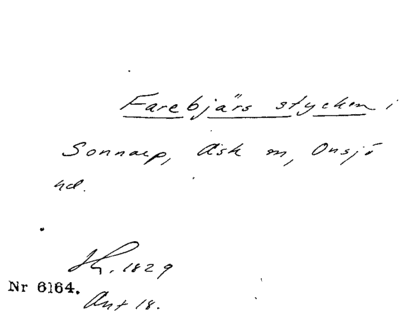 Farebjärs stycken i
Sonnarp, Ask sn, Onsjö
hd.
Hy. 1829
Nr 6164.
Ant 18.